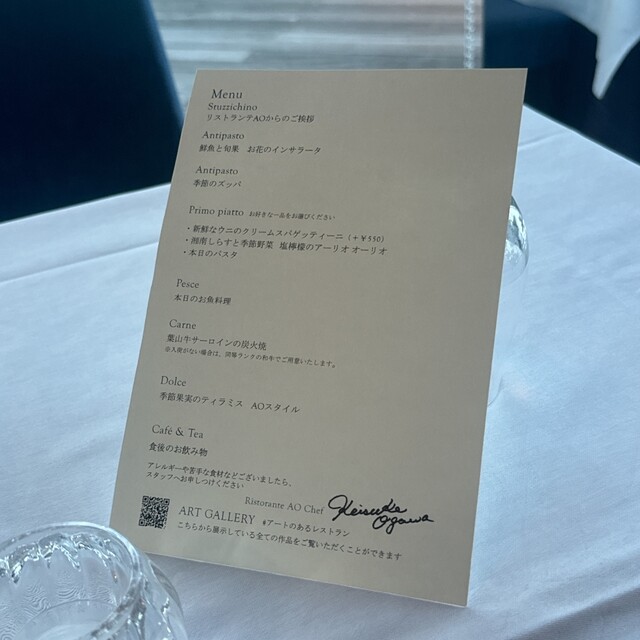 Menu
Stuzzichino
リストランテAOからのご挨拶
Antipasto
鮮魚と旬果　お花のインサラータ
Antipasto
季節のズッパ
Primo piatto　お好きな一品をお選びください
・新鮮なウニのクリームスパゲッティーニ（+￥550）
・湘南しらすと季節野菜　塩檸檬のアーリオ オーリオ
・本日のパスタ
Pesce
本日のお魚料理
Carne
葉山牛サーロインの炭火焼
※入荷がない場合は、同等ランクの和牛でご用意いたします。
Dolce
季節果実のティラミス　AOスタイル
Café & Tea
食後のお飲み物
アレルギーや苦手な食材などございましたら、
スタッフへお申しつけください
Ristorante AO Chef Keisuke Ogawa
ART GALLERY #アートのあるレストラン
こちらから展示している全ての作品をご覧いただくことができます